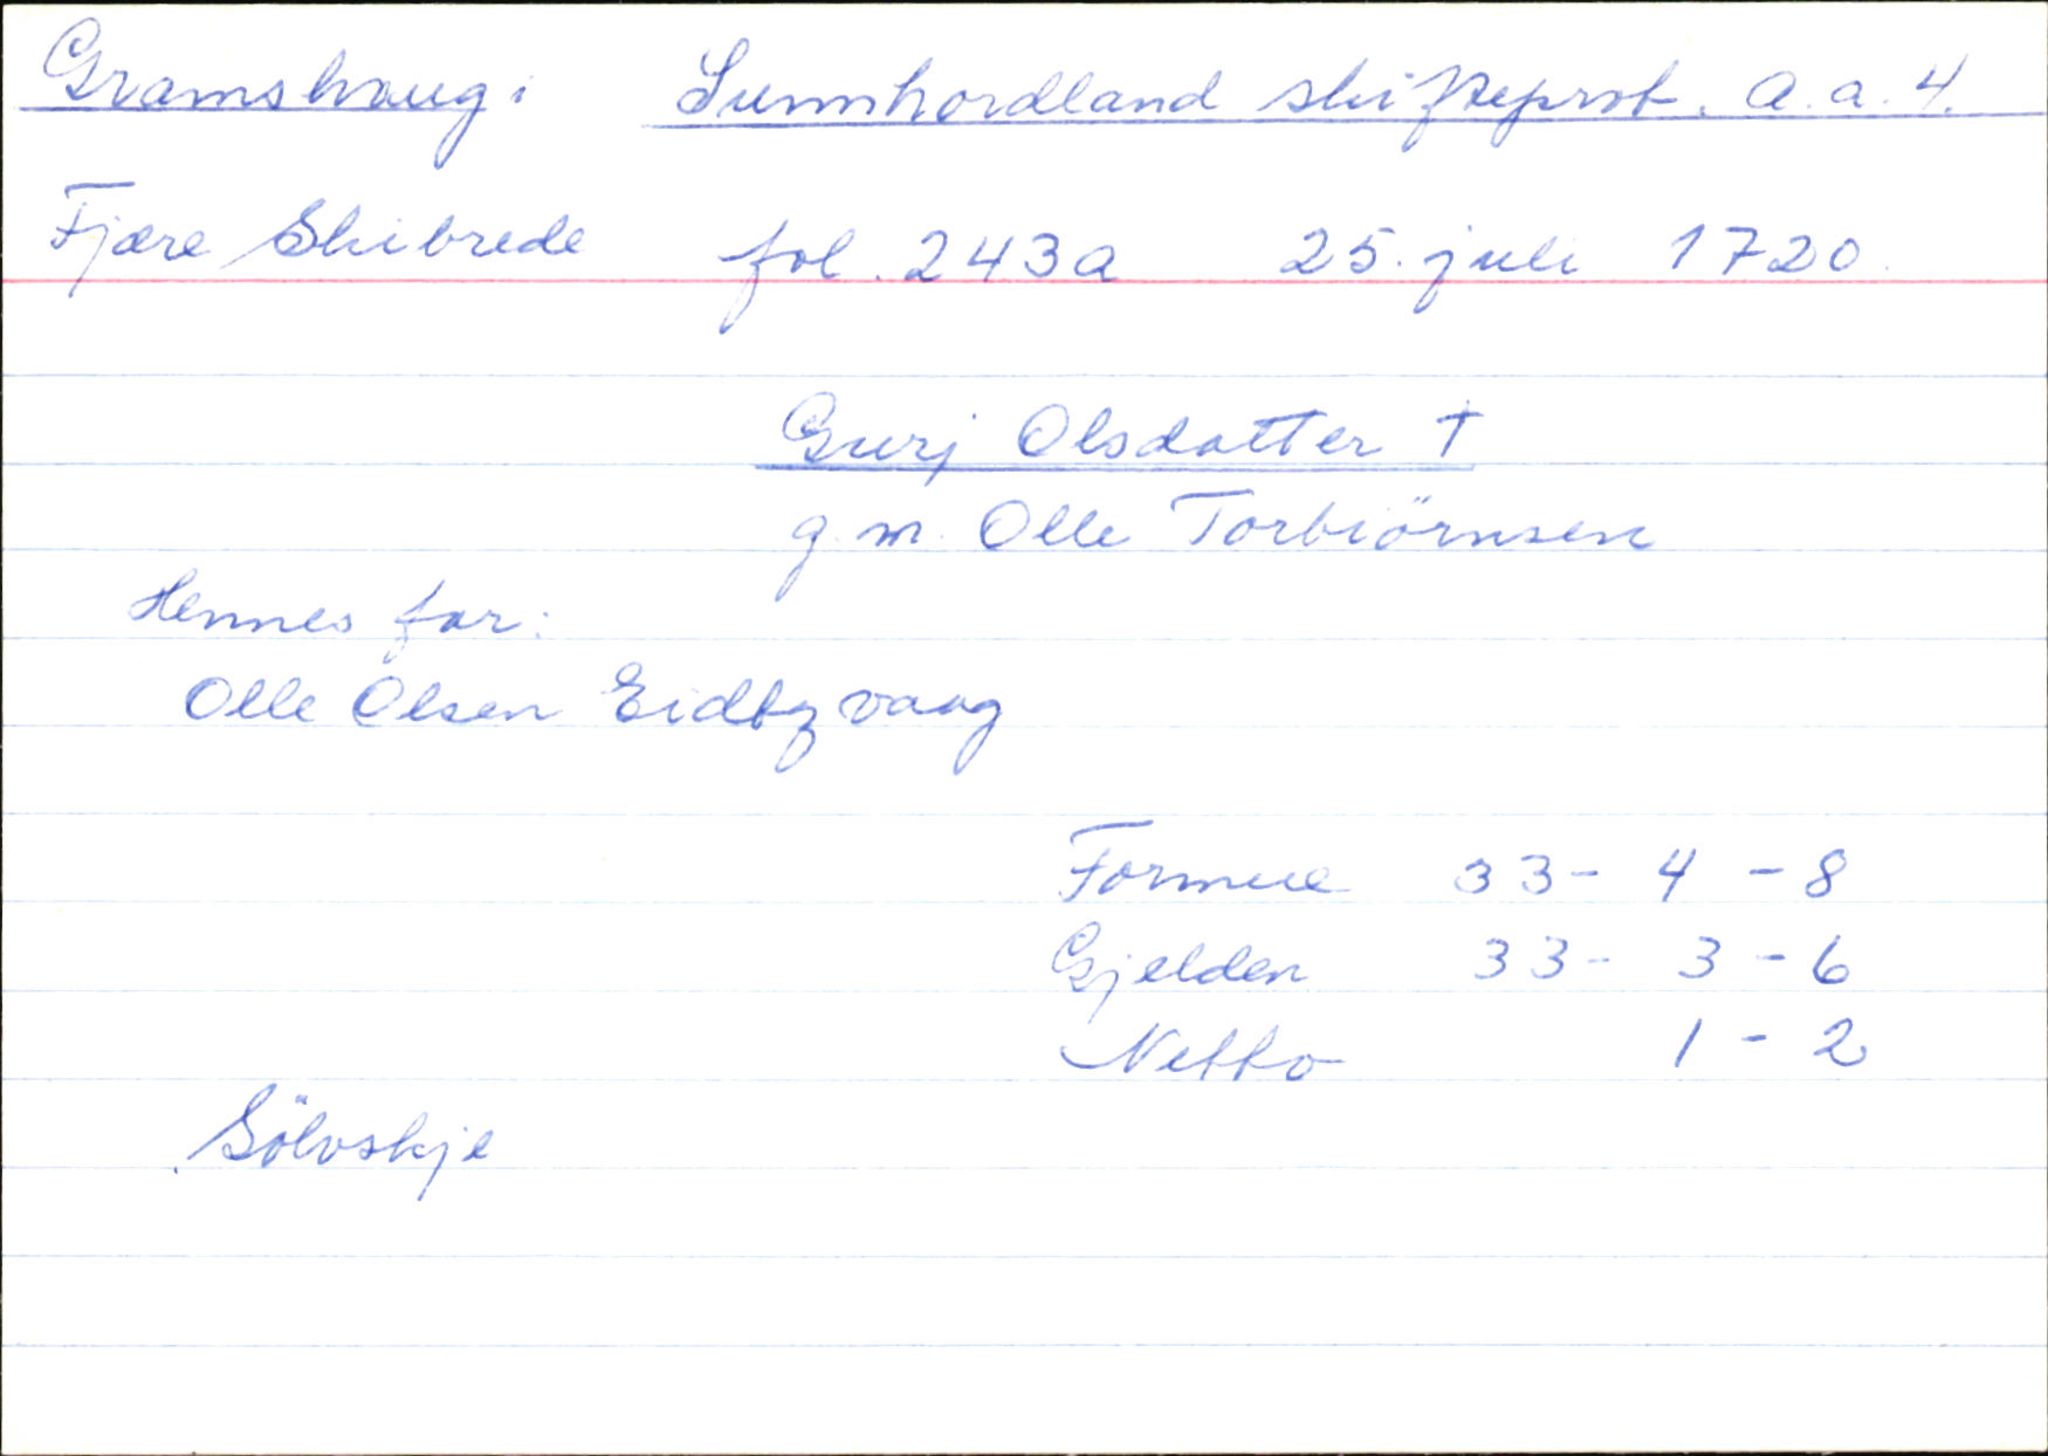 Gramshaug: Sunnhordland skifteprot. A.a.4.
Fjære Skibrede fol. 243a 25. juli 1720.
Gurj Olsdatter †
g. m. Olle Torbiörnsen
Hennes far:
Olle Olsen Eidtzvaag
Formue 33 - 4 - 8
Gjelden 33 - 3 - 6
Netto 1 - 2
Sölvskje